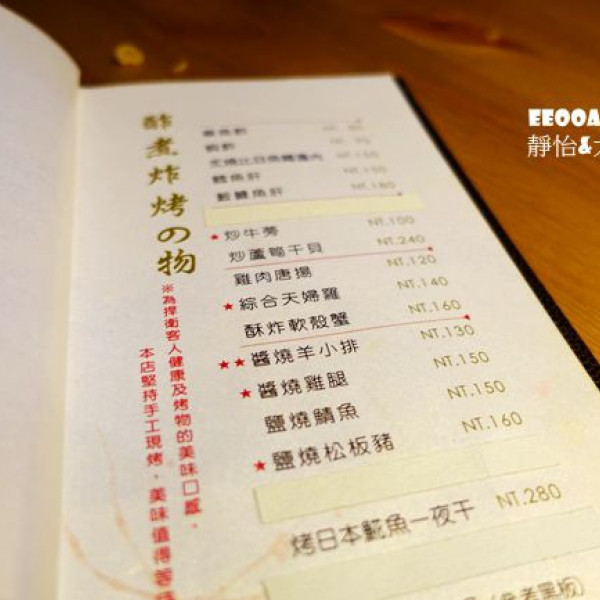 酢煮炸烤の物
※為捍衛客人健康及烤物的美味口感，
本店堅持手工現烤，美味值得等
炙燒比目魚鰭邊肉 NT.150
魚肝 NT.150
魚肝 NT.180
★炒牛蒡 NT.100
炒蘆筍干貝 NT.240
雞肉唐揚 NT.120
★綜合天婦羅 NT.140
酥炸軟殼蟹 NT.160
★★醬燒羊小排 NT.130
★醬燒雞腿 NT.150
鹽燒鯖魚 NT.150
★鹽燒松板豬 NT.160
烤日本魚一夜干 NT.280
EEOOA
靜怡&